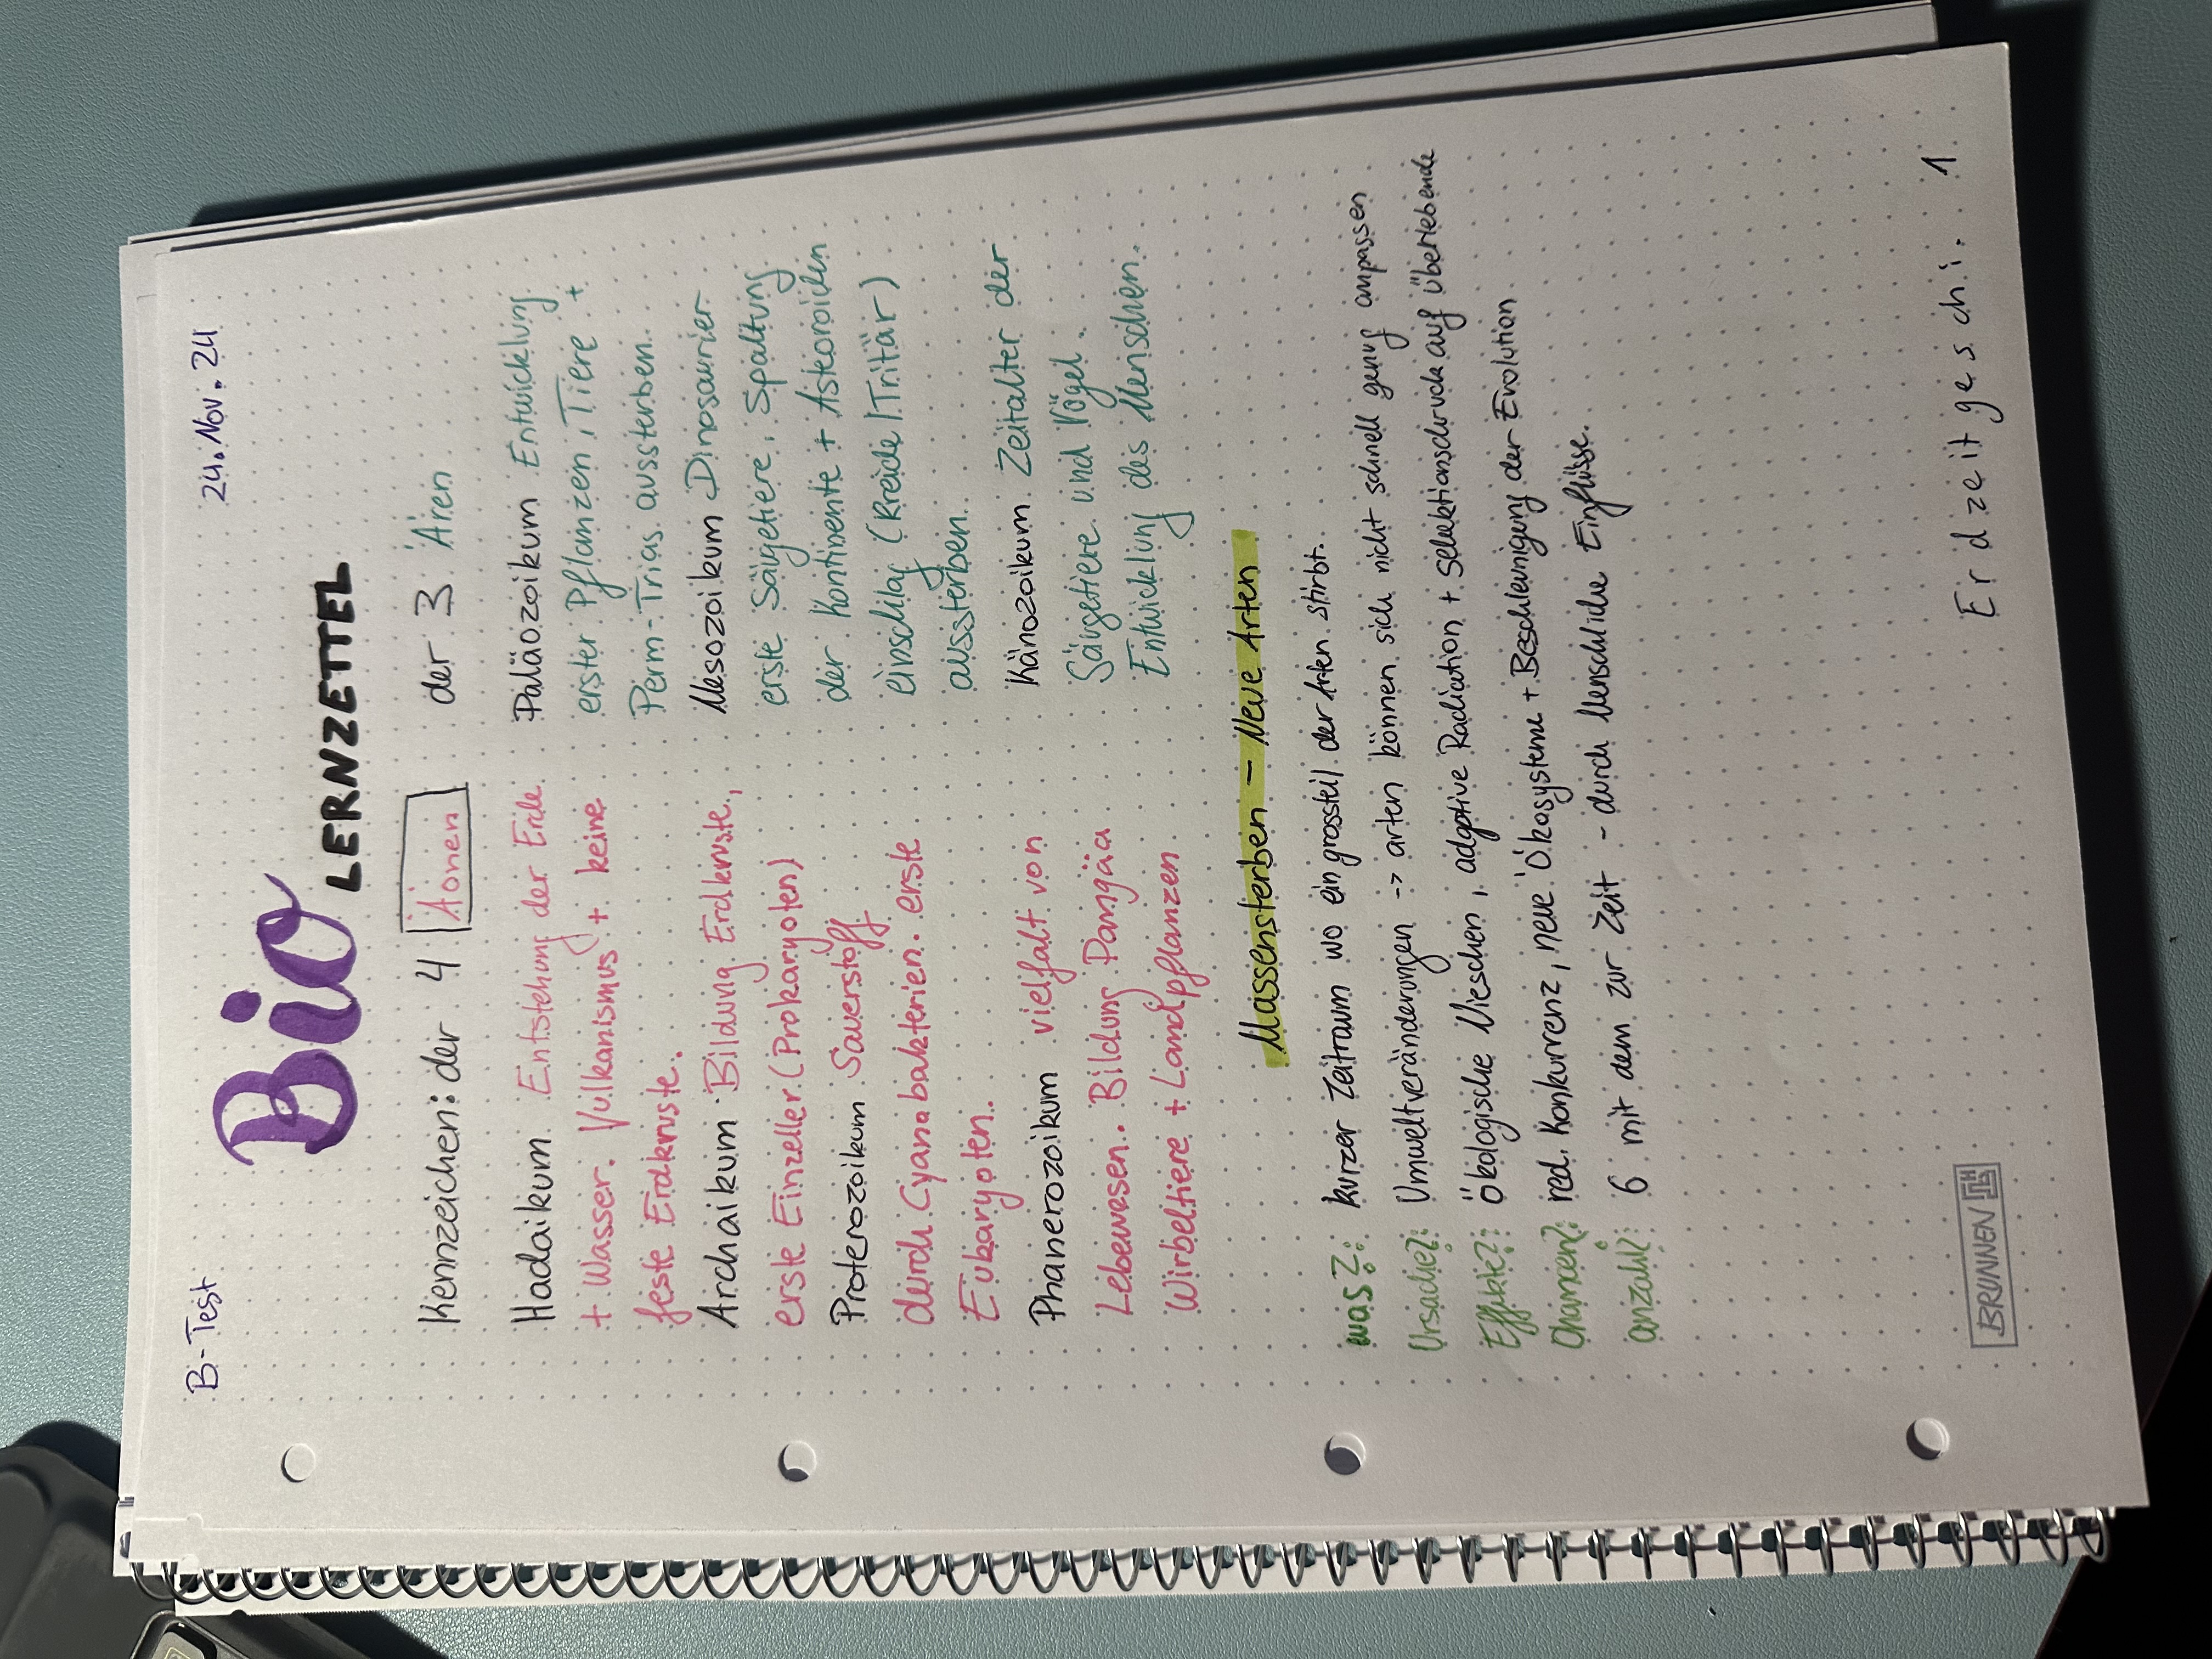 B-Test
24. Nov. 24
Bio LERNZETTEL
Kennzeichen: der 4 Äonen
Hadaikum Entstehung der Erde
+ Wasser. Vulkanismus + keine
feste Erdkruste.
Archaikum Bildung Erdkruste,
erste Einzeller (Prokaryoten)
Proterozoikum Sauerstoff
durch Cyanobakterien. erste
Eukaryoten.
Phanerozoikum vielfalt von
Lebewesen. Bildung Pangäa
Wirbeltiere + Landpflanzen
der 3 Ären
Paläozoikum Entwicklung
erster Pflanzen, Tiere +
Perm-Trias aussterben.
Mesozoikum Dinosaurier
erste Säugetiere, Spaltung
der Kontinente + Asteoroiden
einschlag (Kreide/Tritär)
aussterben.
Känozoikum Zeitalter der
Säugetiere und Vögel.
Entwicklung des Menschen.
Massensterben – Neue Arten
was?: kurzer Zeitraum wo ein grossteil der Arten stirbt.
Ursache?: Umweltveränderungen -> arten können sich nicht schnell genug anpassen
Effekte?: ökologische Nieschen, adaptive Radiation + Selektionsdruck auf überlebende
Chancen?: red. Konkurrenz, neue Ökosysteme + Beschleunigung der Evolution
anzahl?: 6 mit dem zur Zeit - durch Menschliche Einflüsse.
BRUNNEN
Erdzeitgeschi. 1